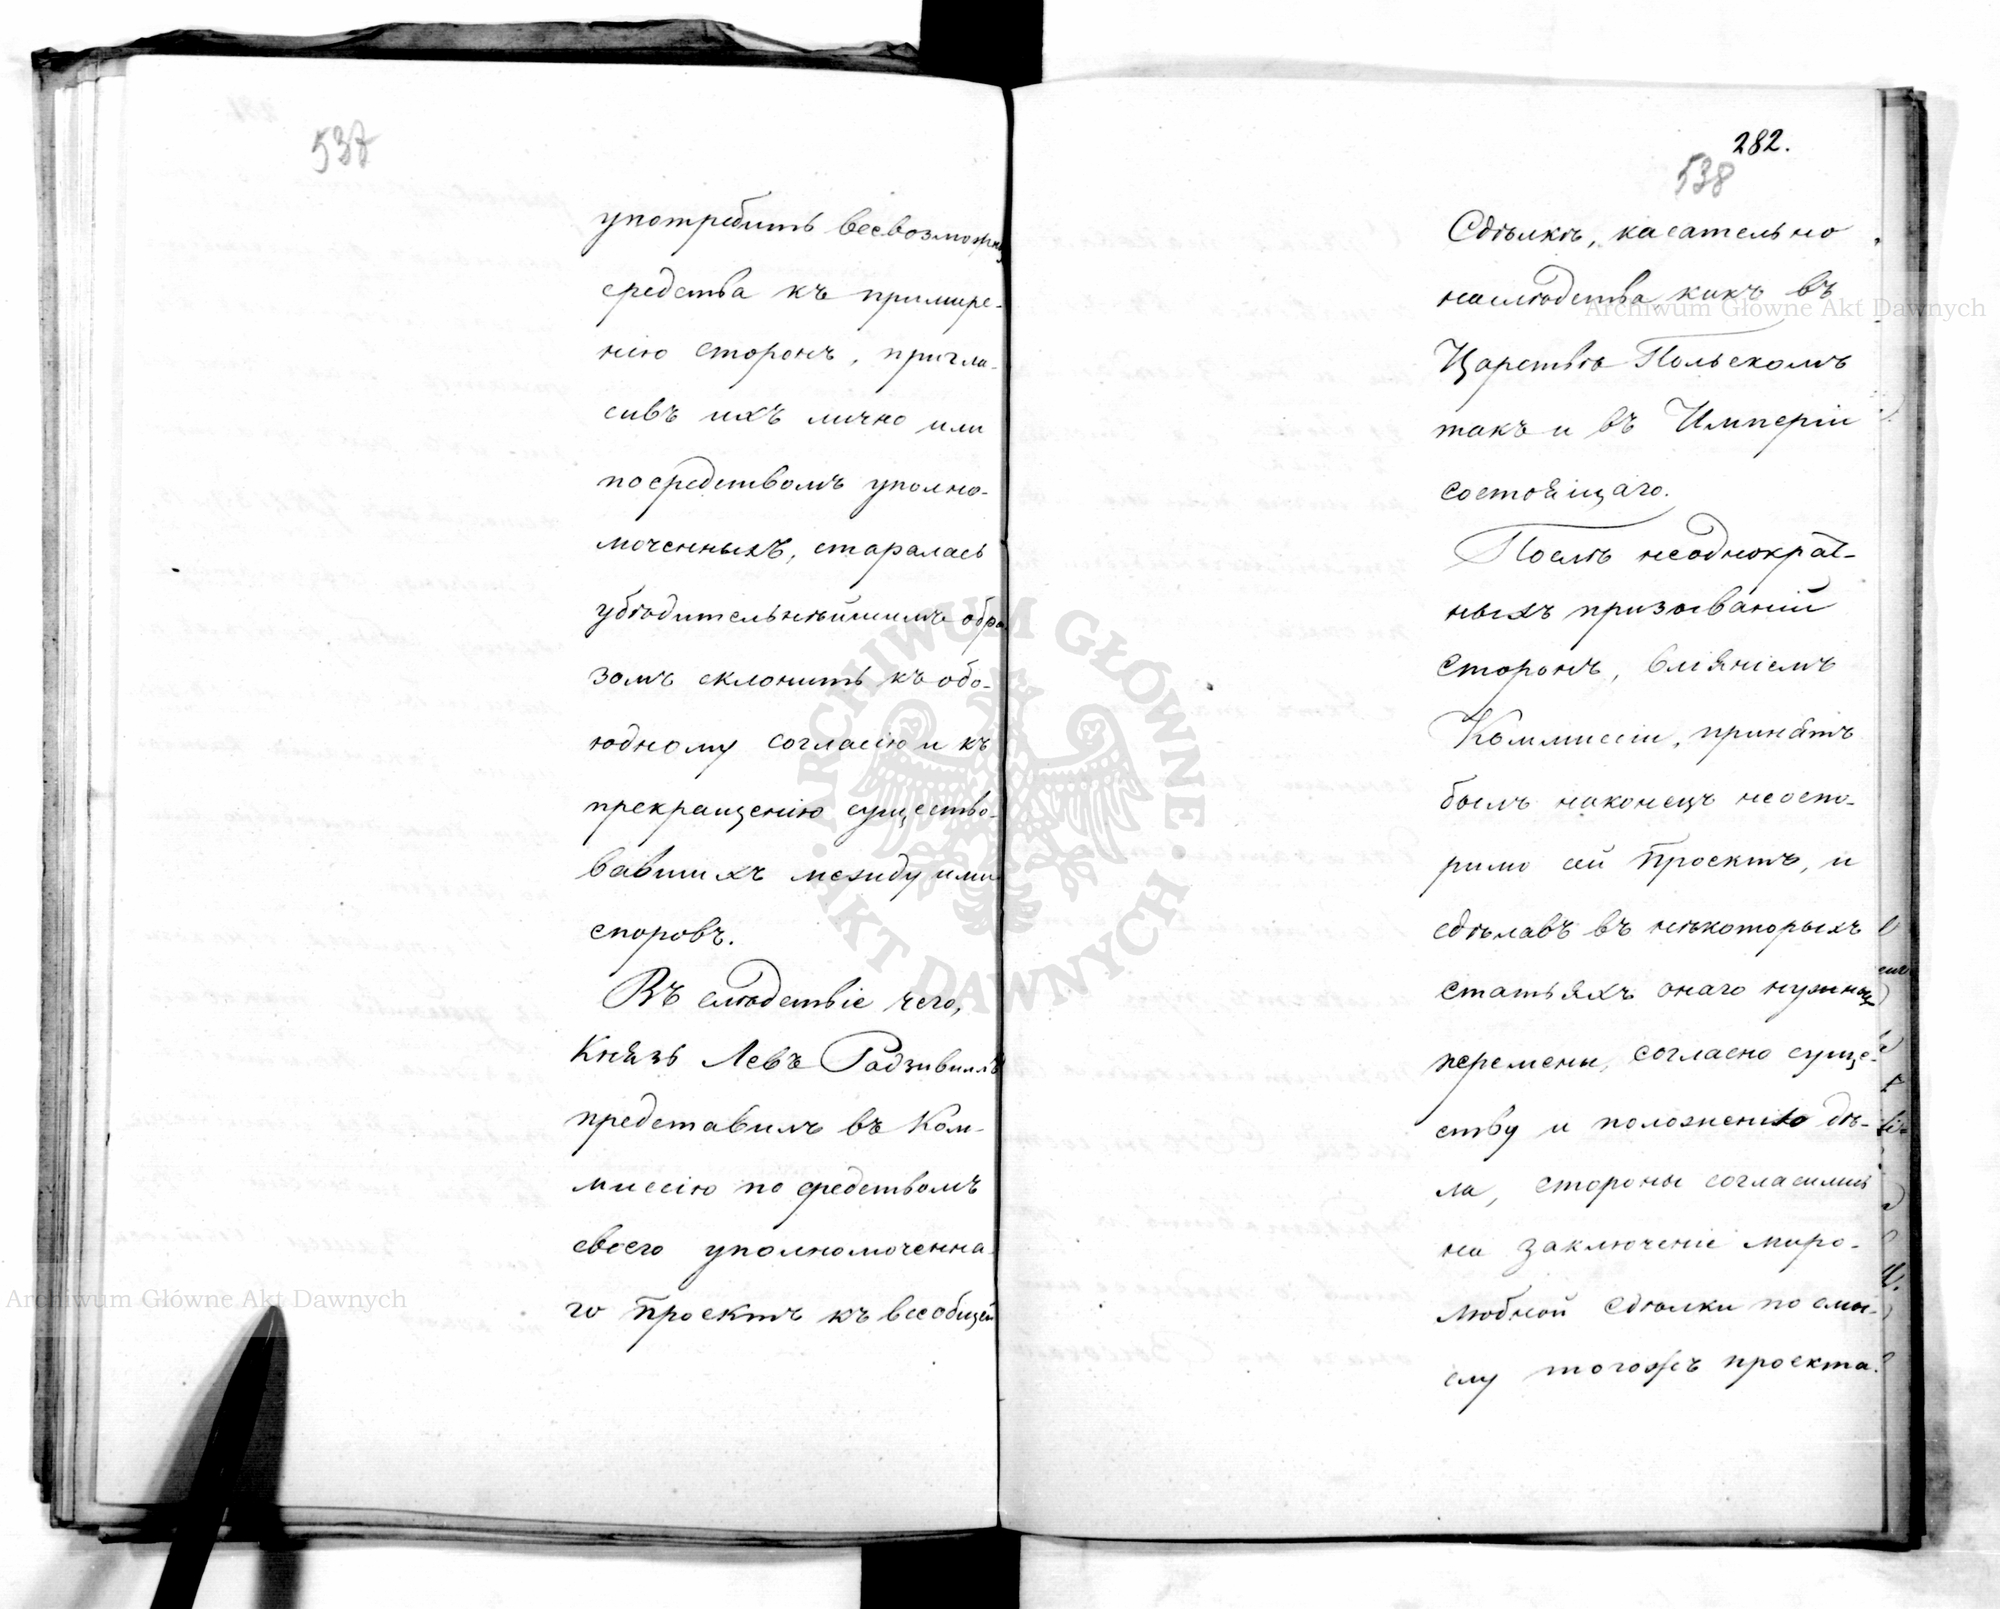 537
употребить всевозможныя
средства къ примире-
нію сторонъ, пригла-
сивъ ихъ лично или
посредствомъ уполно-
моченныхъ, старалась
убѣдительнѣйшимъ обра-
зомъ склонить къ обо-
юдному согласію и къ
прекращенію существо-
вавшихъ между ими
споровъ.
Въ слѣдствіе чего,
Князь Левъ Радзивиллъ
представилъ въ Ком-
миссію по средствомъ
своего уполномоченна-
го проектъ къ всеобщей
282.
538
Сдѣлкѣ, касательно
наслѣдства какъ въ
Царствѣ Польскомъ
такъ и въ Имперіи
состоящаго.
Послѣ неоднократ-
ныхъ призываній
сторонъ, вліяніемъ
Коммиссіи, принятъ
былъ наконецъ неоспо-
римо сей проектъ, и
сдѣлавъ въ нѣкоторыхъ
статьяхъ онаго нужныя
перемены, согласно суще-
ству и положенію дѣ-
ла, стороны согласились
на заключеніе миро-
любной сдѣлки по смы-
слу тогожъ проекта.
Archiwum Główne Akt Dawnych
Archiwum Główne Akt Dawnych
ARCHIWUM GŁÓWNE AKT DAWNYCH